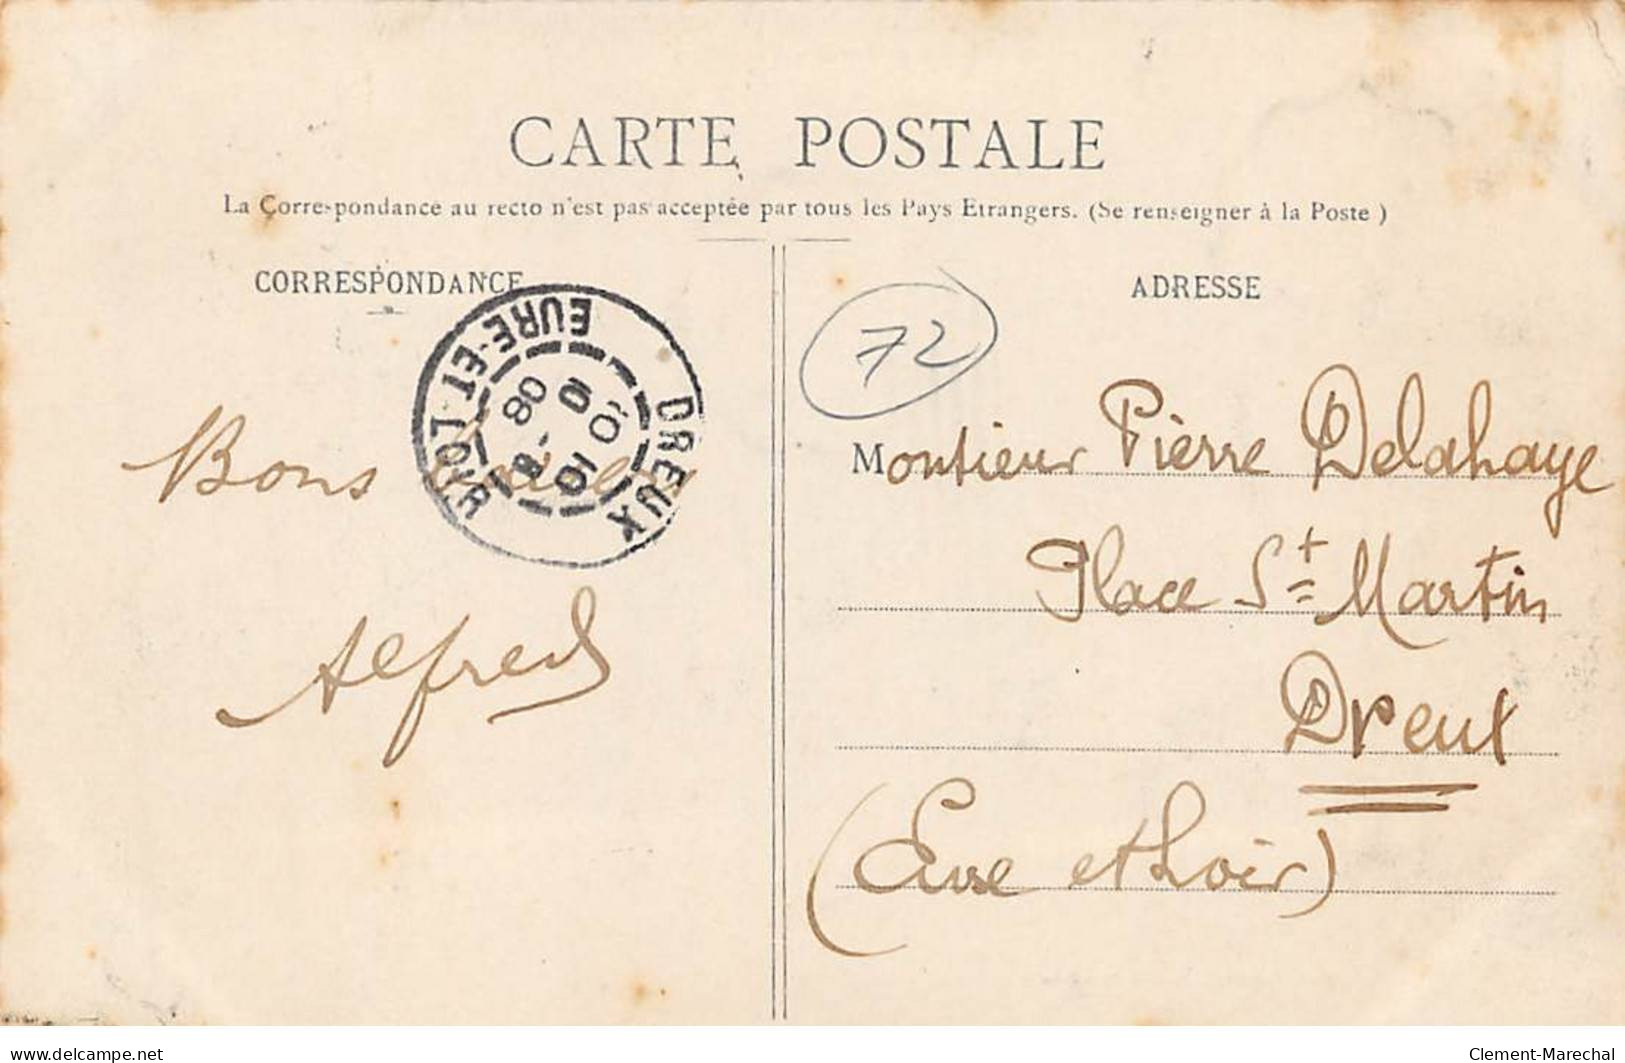 CARTE POSTALE
La Correspondance au recto n'est pas acceptée par tous les Pays Etrangers. (Se renseigner à la Poste )
CORRESPONDANCE
ADRESSE
72
DREUX
EURE-ET-LOIR
08
Bons
Alfred
Monsieur Pierre Delahaye
Place St Martin
Dreux
(Eure et Loir)
www.delcampe.net
Clement-Marechal